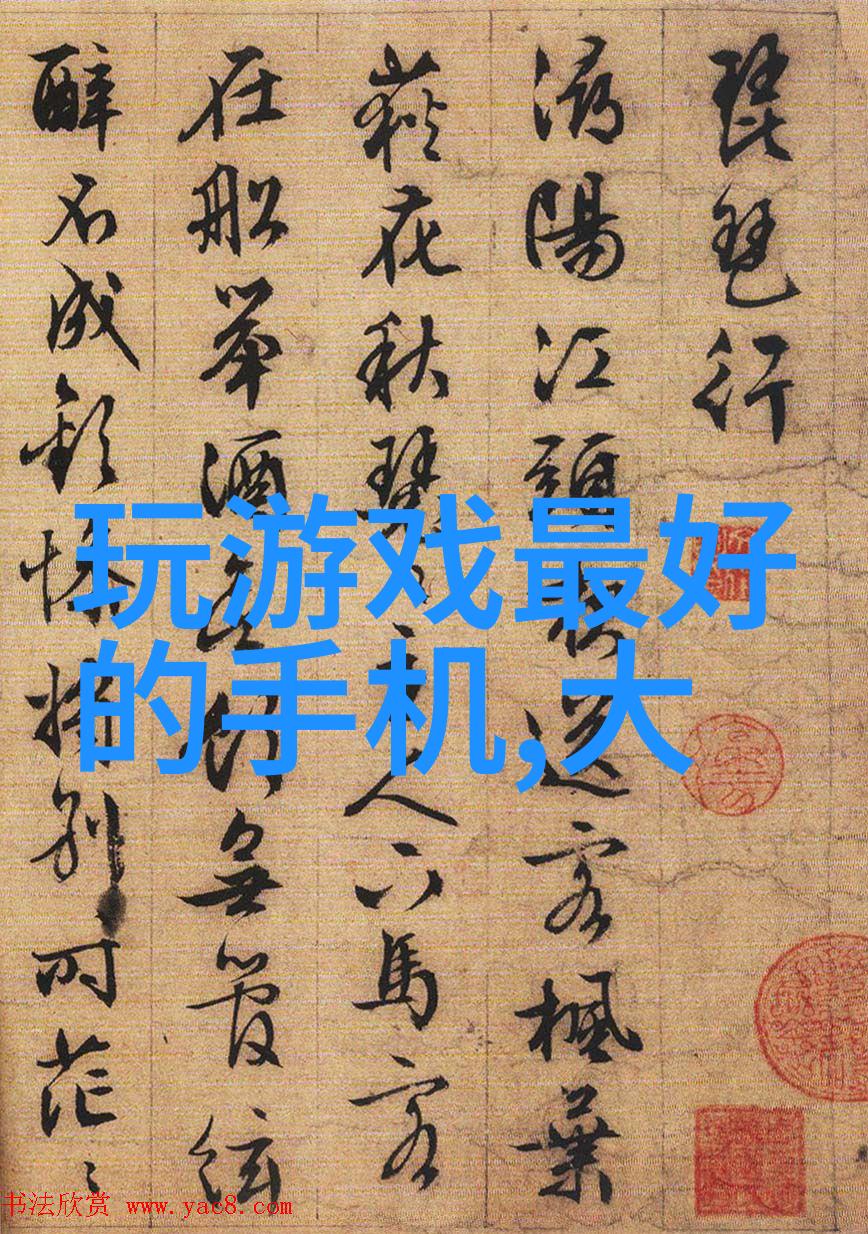 琵琶行
潯陽江頭夜送客楓葉
荻花秋瑟々主人下馬客
在船舉酒欲飲無管弦
醉不成歡慘將別別時茫々
玩游戏最好
的手机,大
书法欣赏 www.yac8.com